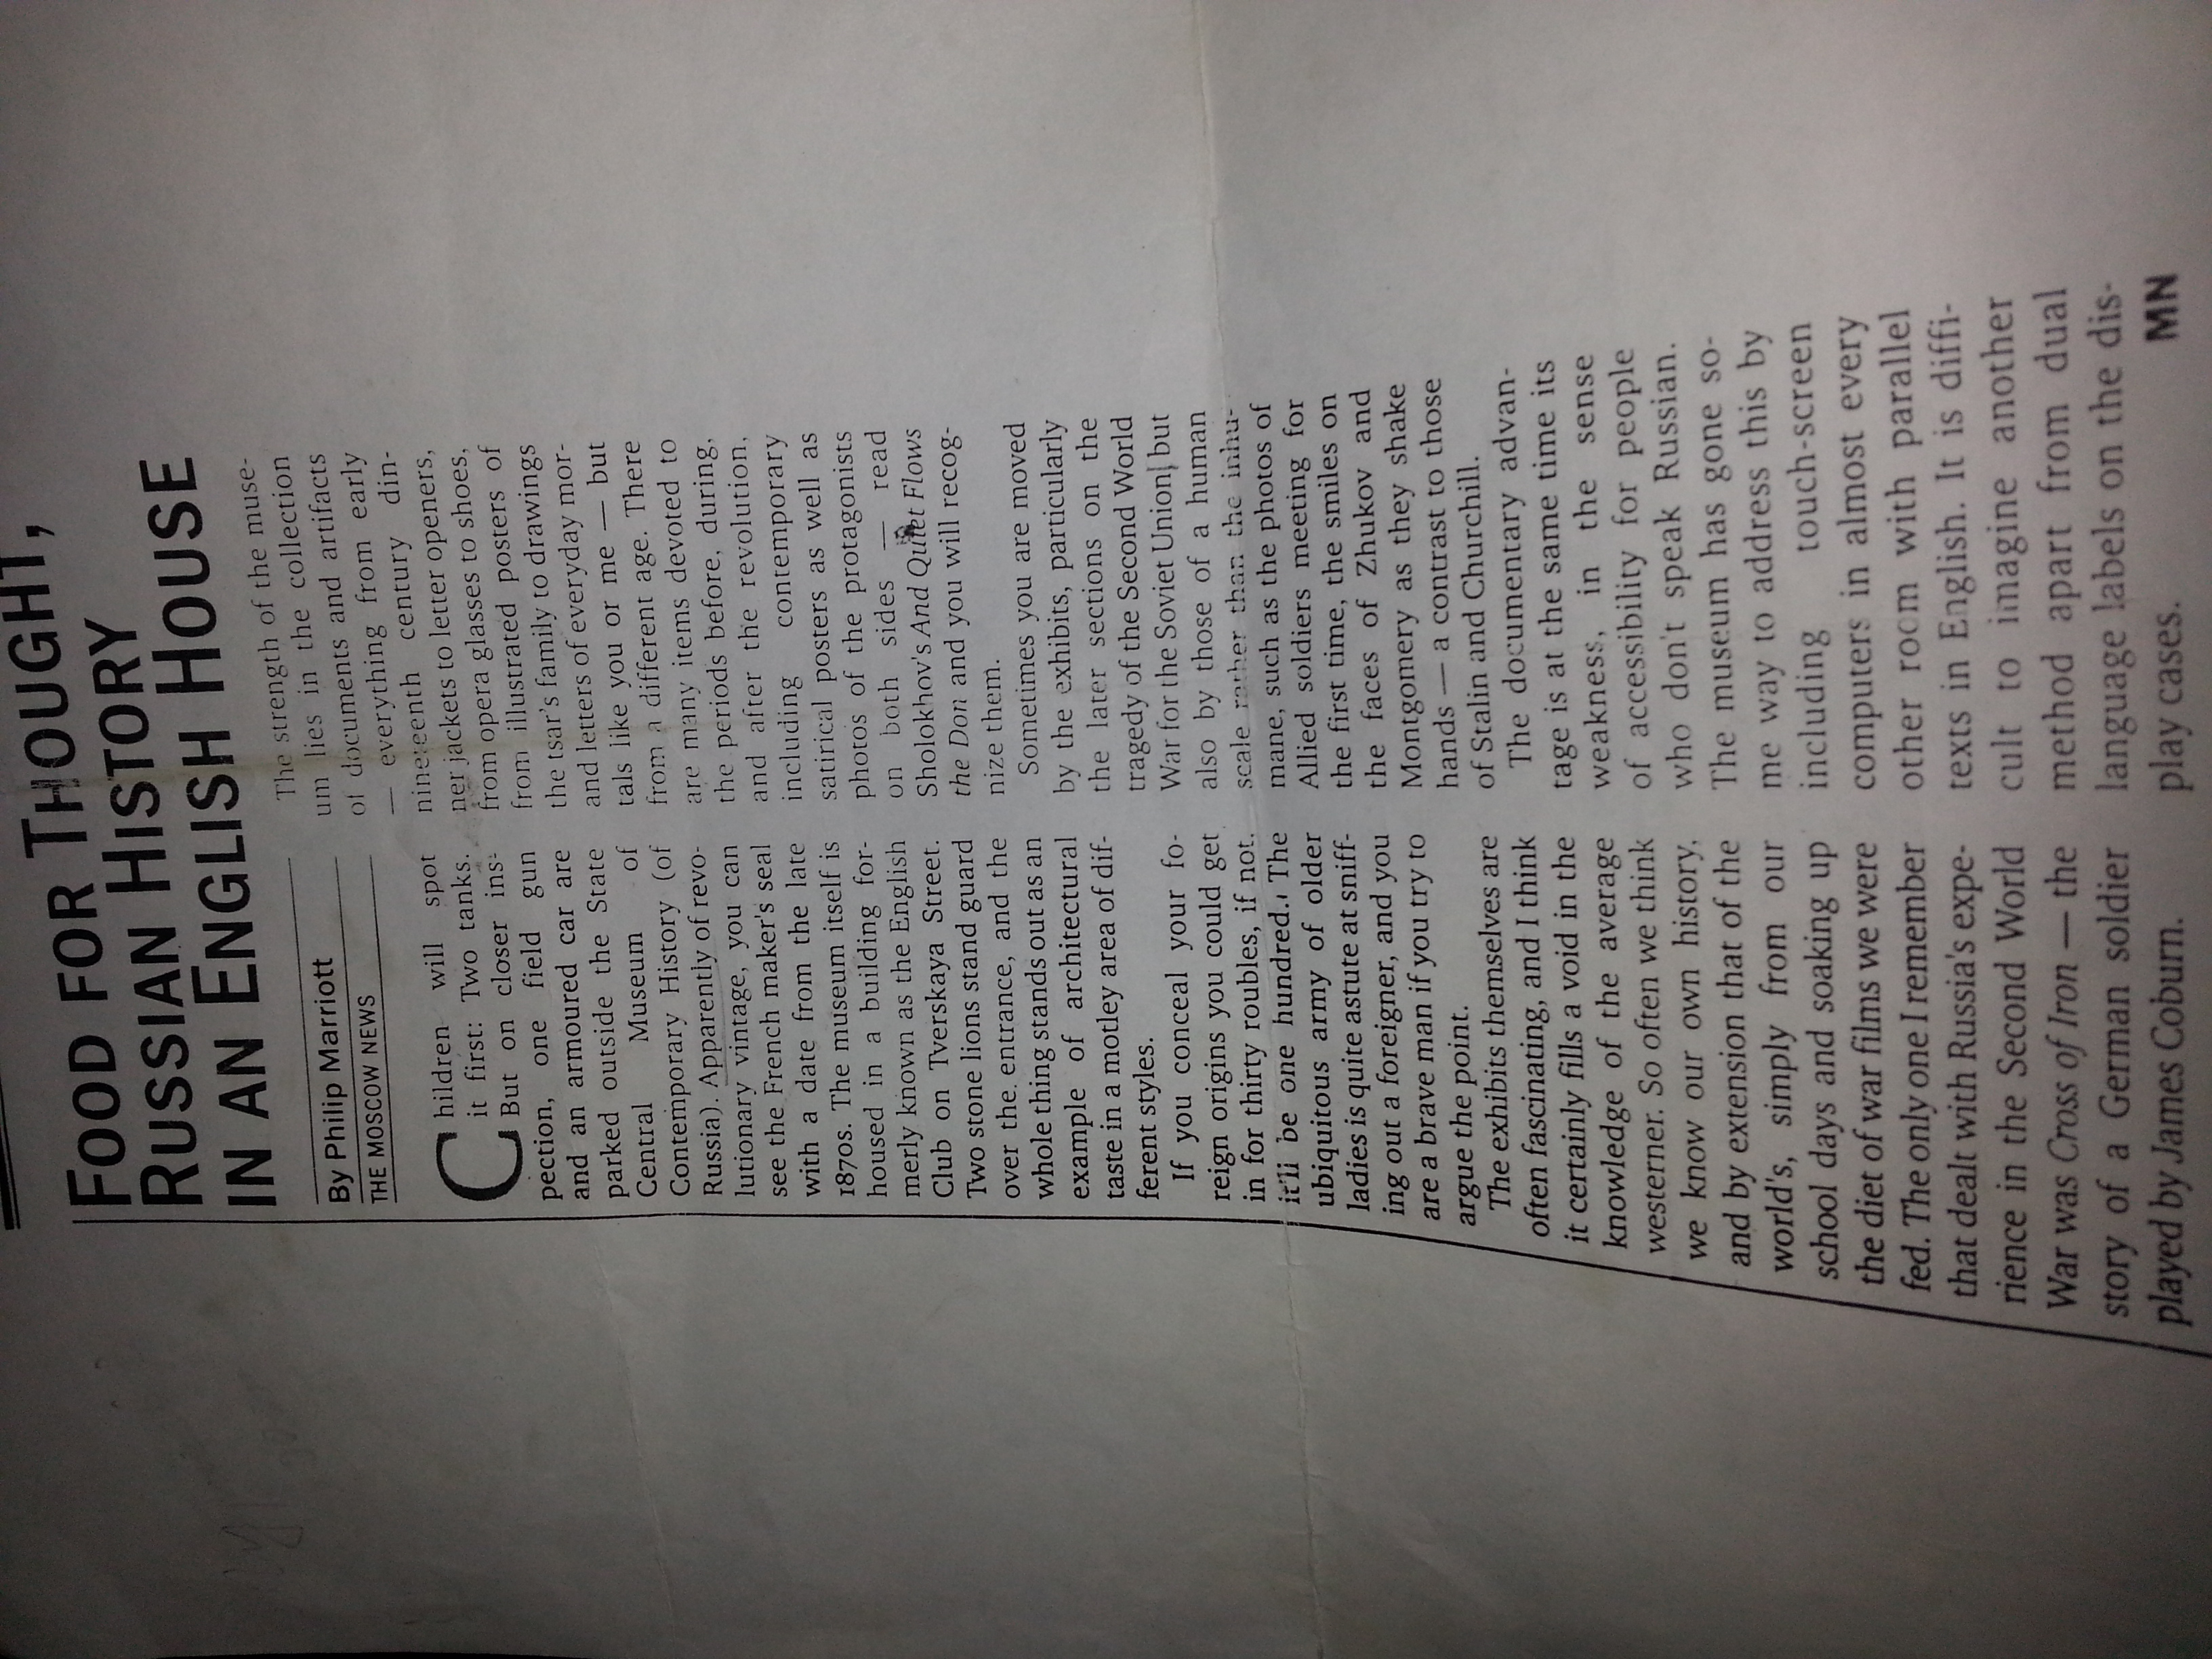 FOOD FOR THOUGHT,
RUSSIAN HISTORY
IN AN ENGLISH HOUSE
By Philip Marriott
THE MOSCOW NEWS
Children will spot
it first: Two tanks.
But on closer ins-
pection, one field gun
and an armoured car are
parked outside the State
Central Museum of
Contemporary History (of
Russia). Apparently of revo-
lutionary vintage, you can
see the French maker's seal
with a date from the late
1870s. The museum itself is
housed in a building for-
merly known as the English
Club on Tverskaya Street.
Two stone lions stand guard
over the entrance, and the
whole thing stands out as an
example of architectural
taste in a motley area of dif-
ferent styles.
If you conceal your fo-
reign origins you could get
in for thirty roubles, if not,
it'll be one hundred. The
ubiquitous army of older
ladies is quite astute at sniff-
ing out a foreigner, and you
are a brave man if you try to
argue the point.
The exhibits themselves are
often fascinating, and I think
it certainly fills a void in the
knowledge of the average
westerner. So often we think
we know our own history,
and by extension that of the
world's, simply from our
school days and soaking up
the diet of war films we were
fed. The only one I remember
that dealt with Russia's expe-
rience in the Second World
War was Cross of Iron — the
story of a German soldier
played by James Coburn.
The strength of the muse-
um lies in the collection
of documents and artifacts
— everything from early
nineteenth century din-
ner jackets to letter openers,
from opera glasses to shoes,
from illustrated posters of
the tsar's family to drawings
and letters of everyday mor-
tals like you or me — but
from a different age. There
are many items devoted to
the periods before, during,
and after the revolution,
including contemporary
satirical posters as well as
photos of the protagonists
on both sides — read
Sholokhov's And Quiet Flows
the Don and you will recog-
nize them.
Sometimes you are moved
by the exhibits, particularly
the later sections on the
tragedy of the Second World
War for the Soviet Union, but
also by those of a human
scale rather than the inhu-
mane, such as the photos of
Allied soldiers meeting for
the first time, the smiles on
the faces of Zhukov and
Montgomery as they shake
hands — a contrast to those
of Stalin and Churchill.
The documentary advan-
tage is at the same time its
weakness, in the sense
of accessibility for people
who don't speak Russian.
The museum has gone so-
me way to address this by
including touch-screen
computers in almost every
other room with parallel
texts in English. It is diffi-
cult to imagine another
method apart from dual
language labels on the dis-
play cases. MN